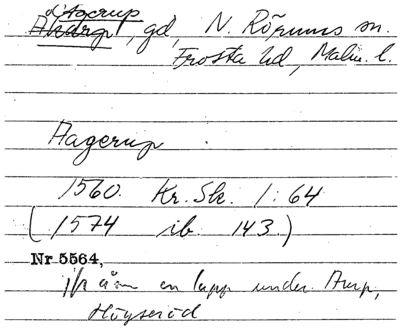 Agerup
Akarp, gd, N. Rörums sn.
Frosta hd, Malm. l.
Aagerup
1560. Kr. Sk. 1:64
(1574 ib. 143.)
Nr 5564,
en lapp under Arup,
Höyseröd